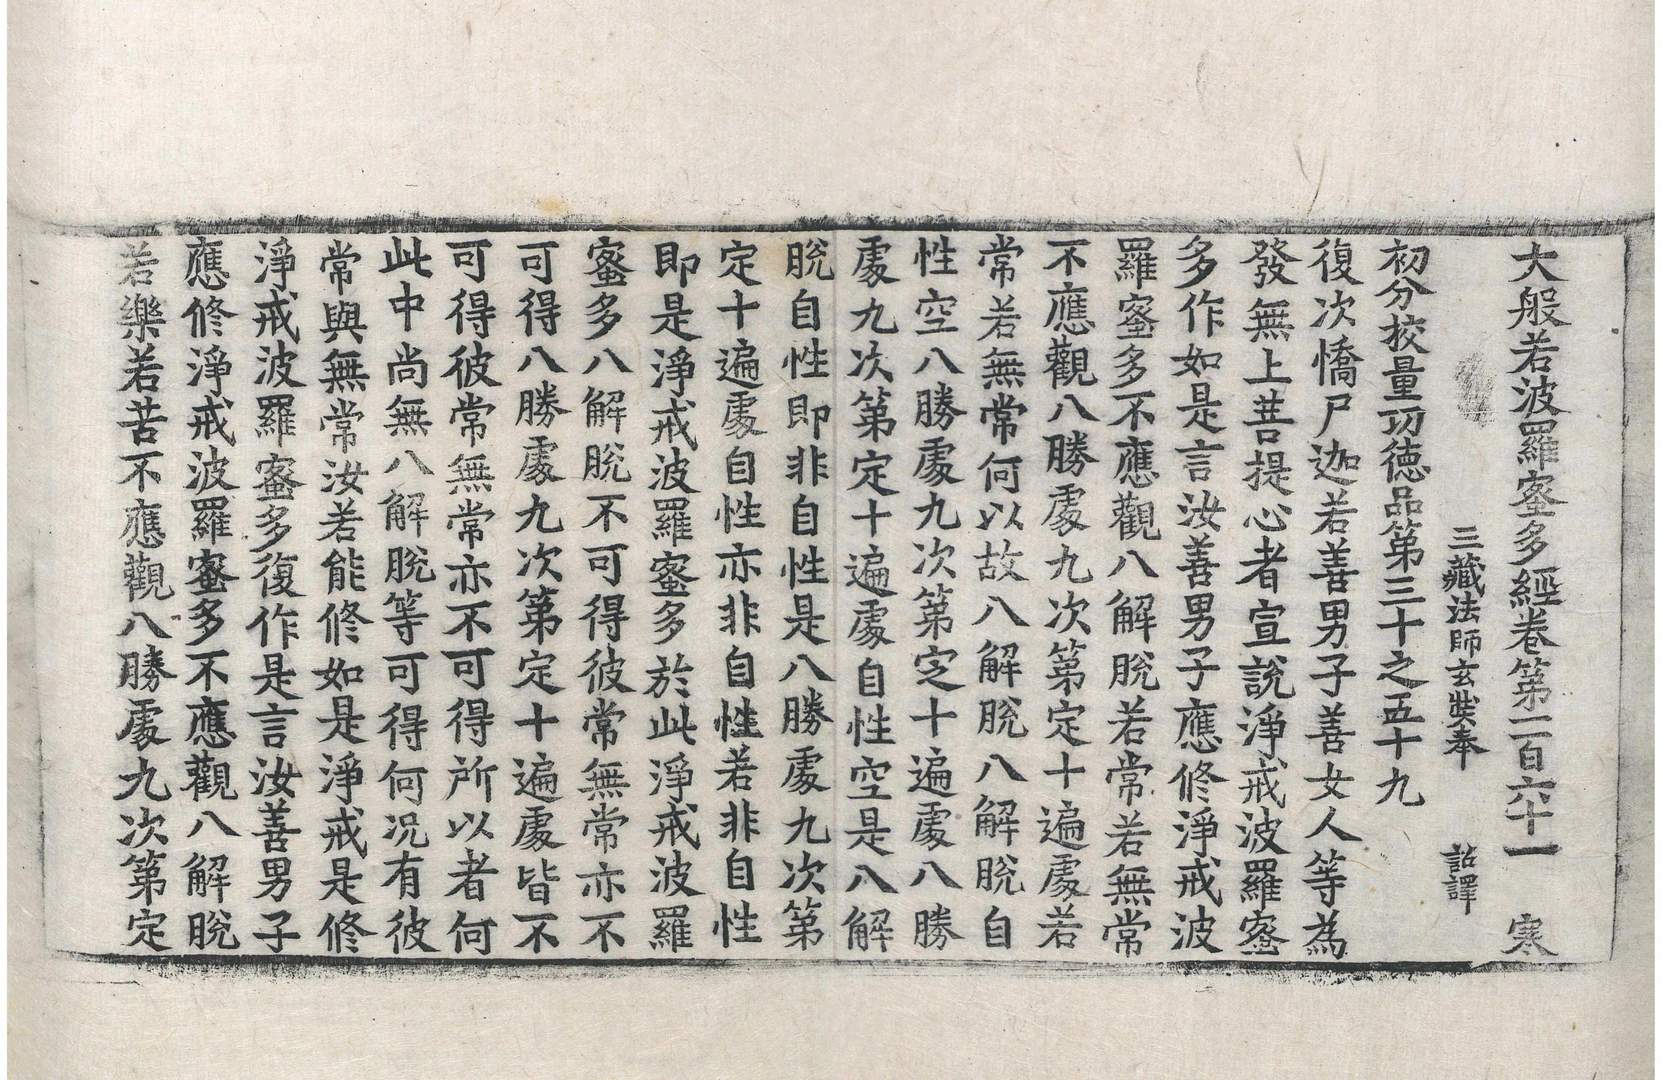 大般若波羅蜜多經卷第一百六十一　寒
三藏法師玄奘奉　詔譯
初分挍量功德品第三十之五十九
復次憍尸迦若善男子善女人等為
發無上菩提心者宣說淨戒波羅蜜
多作如是言汝善男子應修淨戒波
羅蜜多不應觀八解脫若常若無常
不應觀八勝處九次第定十遍處若
常若無常何以故八解脫八解脫自
性空八勝處九次第定十遍處八勝
處九次第定十遍處自性空是八解
脫自性即非自性是八勝處九次第
定十遍處自性亦非自性若非自性
即是淨戒波羅蜜多於此淨戒波羅
蜜多八解脫不可得彼常無常亦不
可得八勝處九次第定十遍處皆不
可得彼常無常亦不可得所以者何
此中尚無八解脫等可得何況有彼
常與無常汝若能修如是淨戒是修
淨戒波羅蜜多復作是言汝善男子
應修淨戒波羅蜜多不應觀八解脫
若樂若苦不應觀八勝處九次第定